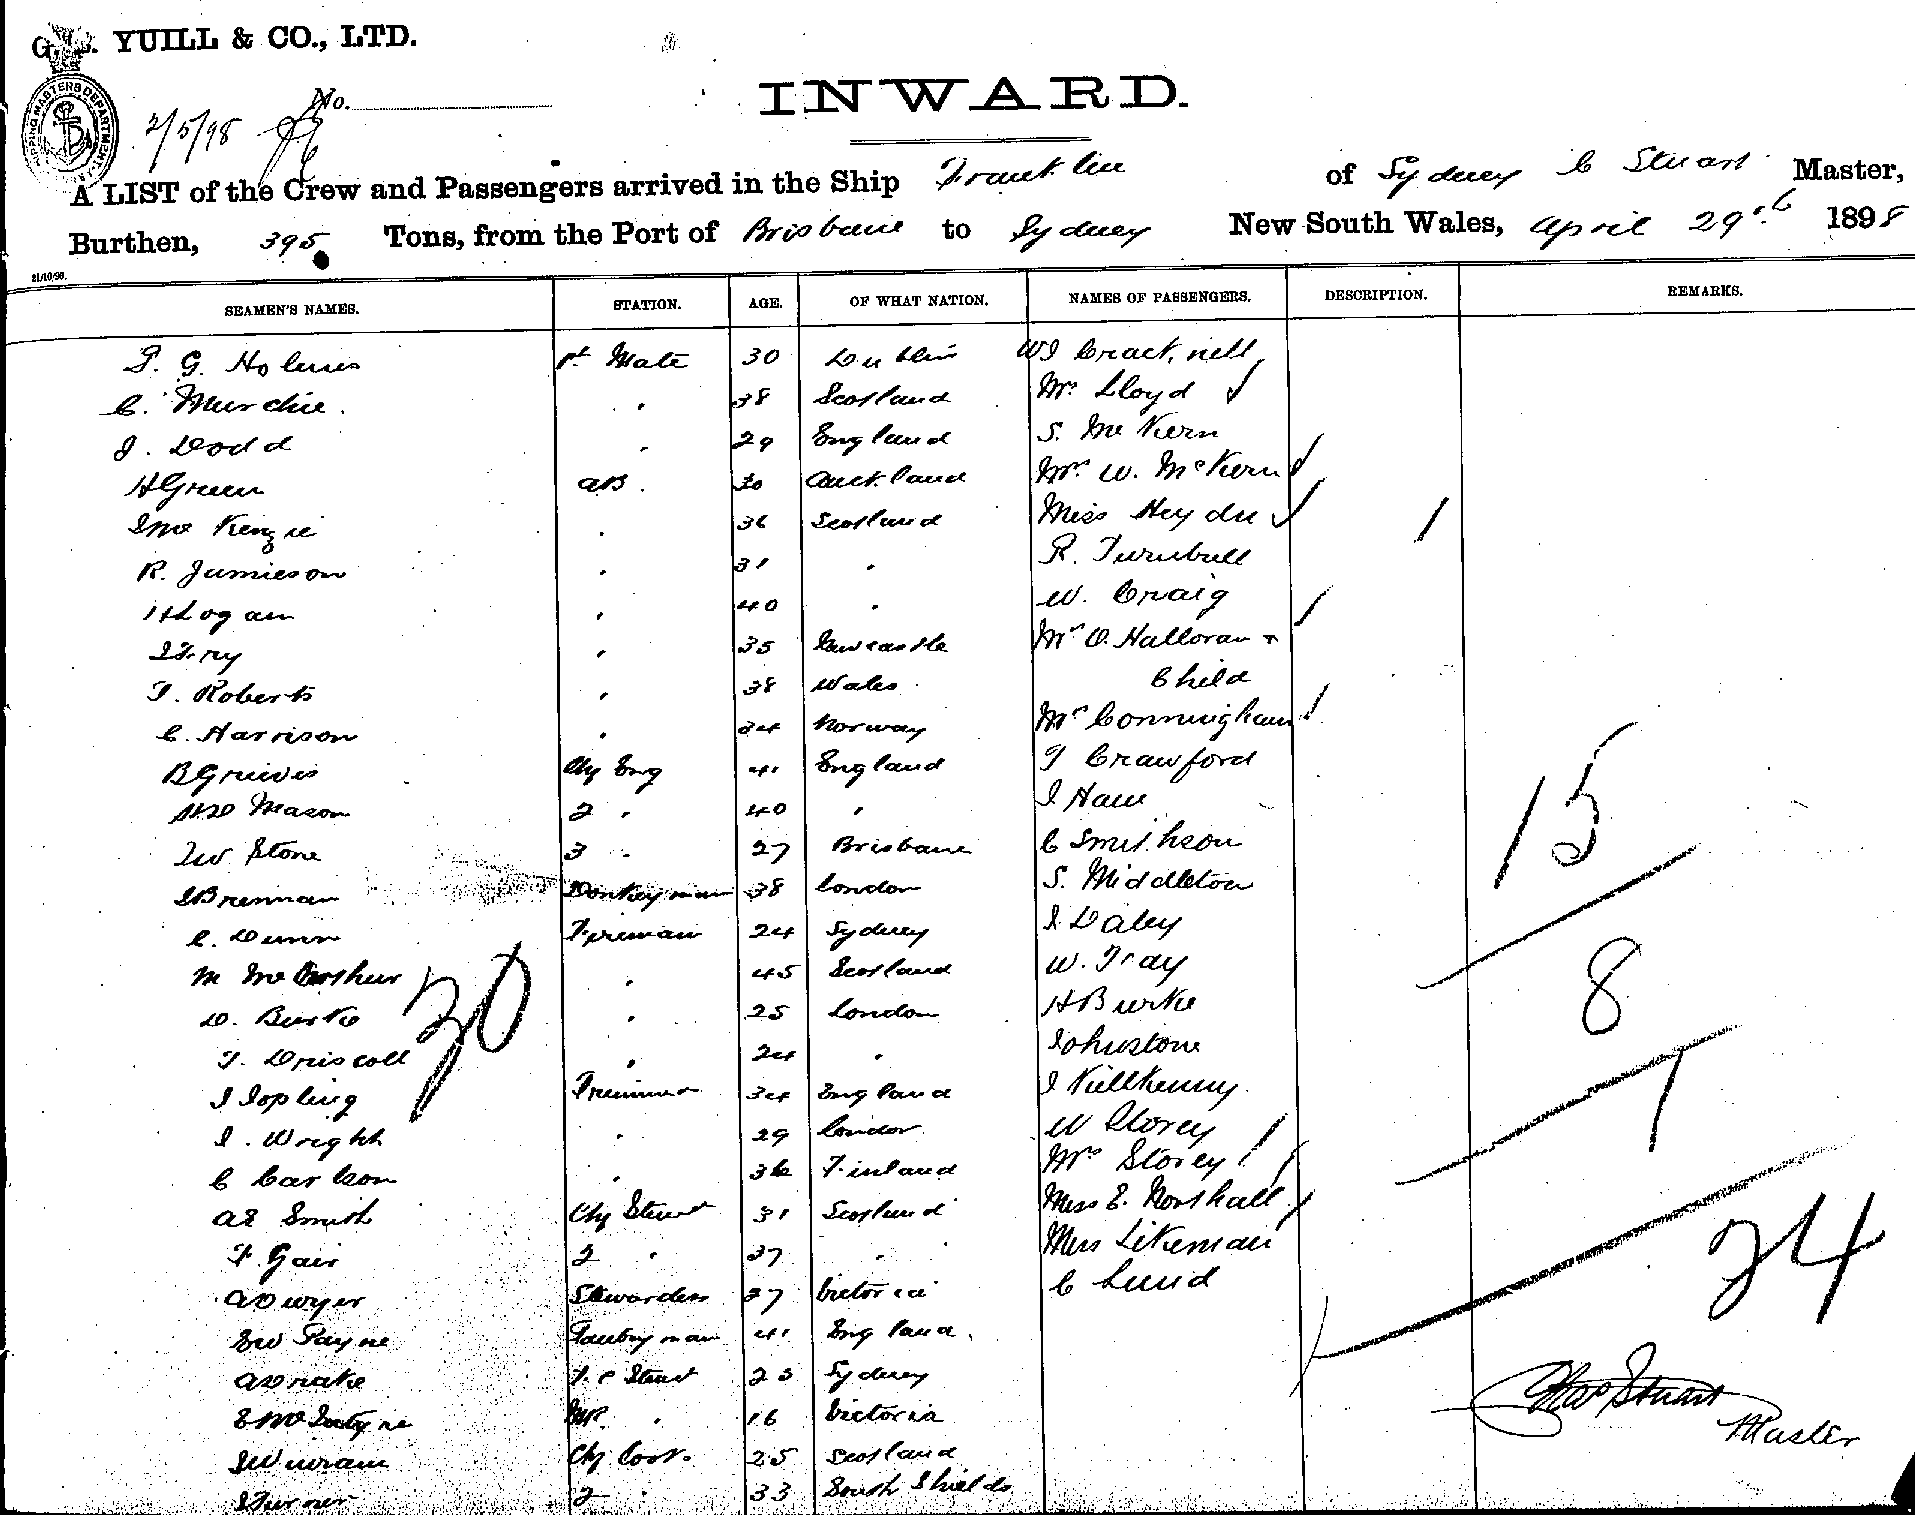 G. YUILL & CO., LTD.
No.
INWARD.
2/5/98
A LIST of the Crew and Passengers arrived in the Ship Franklin of Sydney C Stuart Master,
Burthen, 395 Tons, from the Port of Brisbane to Sydney New South Wales, April 29th 1898
21/10/96.
SEAMEN'S NAMES. STATION. AGE. OF WHAT NATION. NAMES OF PASSENGERS. DESCRIPTION. REMARKS.
P. G. Holmes 1st Mate 30 Dublin Cracknell
C. Murchie . 38 Scotland Mr Lloyd
J. Dodd . 29 England S. McKern
H Green AB. 30 Auckland Mrs W. McKern
J McKenzie . 36 Scotland Miss Heyde
R. Jamieson . 31 . R. Turnbull
H Logan . 40 . W. Craig
J Fry . 35 Newcastle Mrs O. Halloran +
Child
T. Roberts . 38 Wales
C. Harrison . 34 Norway Mrs Conningham
B Grieves Chf Eng 41 England T Crawford
Mason 2 . 40 . J Ham
15
J W Stone 3 . 27 Brisbane C Smithson
J Brennan Donkeyman 38 London S. Middleton
C. Dunn Fireman 24 Sydney J Daley
M McArthur . 45 Scotland W. Fray
30
8
D. Burke . 25 London H Burke
T. Driscoll . 24 . Johnstone
J Jopling Trimmer 34 England J Killkenny
1
J. Wright . 29 London W Storey
C Carlson . 36 Finland Mrs Storey
A E Smith Chf Stewd 31 Scotland Miss E. Northall
24
F. Gair 2 . 37 . Miss Likeman
A Dwyer Stewardess 37 Victoria C Lund
E W Payne Pantryman 41 England.
A Drake F. C Stewd 23 Sydney
Chas Stuart
Master
E McIntyre . 16 Victoria
J W Chf Cook 25 Scotland
J Turner 2 . 33 South Shields